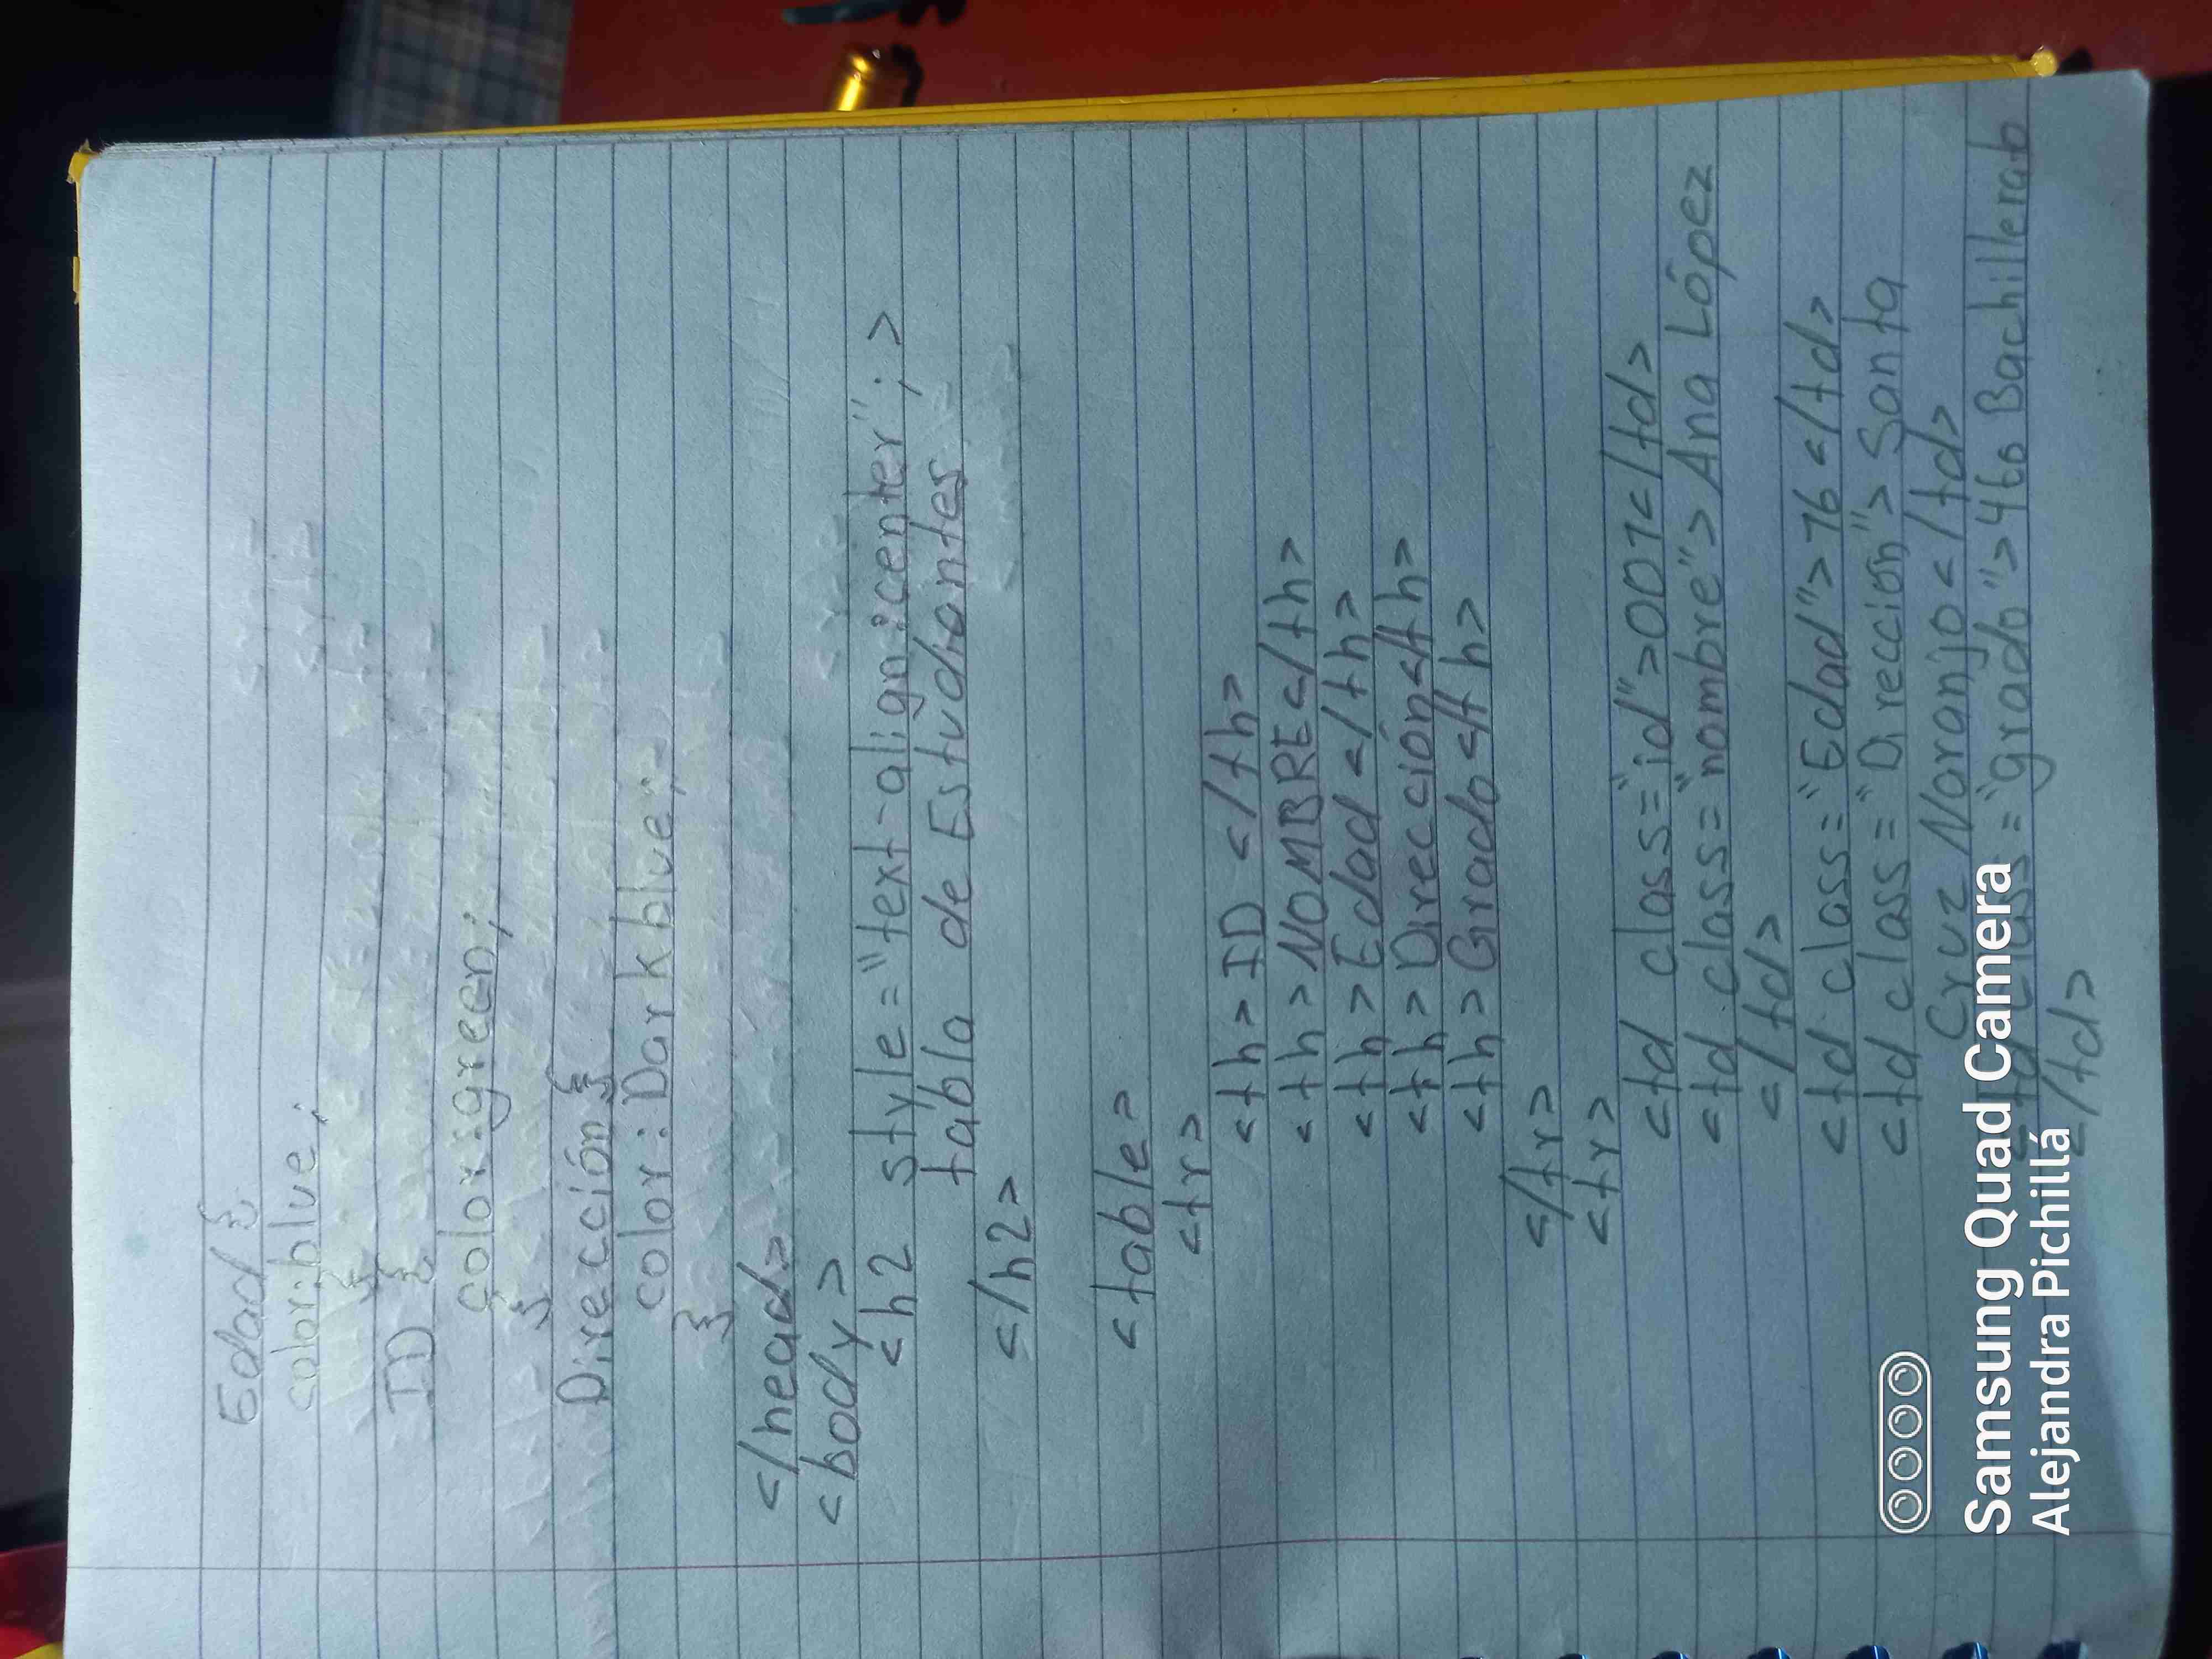 Edad {
color:blue;
}
ID {
color:green;
}
Dirección {
color:Dark blue;
}
</head>
<body>
<h2 style="text-align:center";>
tabla de Estudiantes
</h2>
<table>
<tr>
<th>ID </th>
<th>NOMBRE</th>
<th>Edad </th>
<th>Dirección</th>
<th>Grado</th>
</tr>
<tr>
<td class="id">001</td>
<td class="nombre">Ana López
</td>
<td class="Edad">16</td>
<td class="Dirección">Santa
Cruz Naranjo</td>
<td class="grado">4to Bachillerato
</td>
Samsung Quad Camera
Alejandra Pichillá